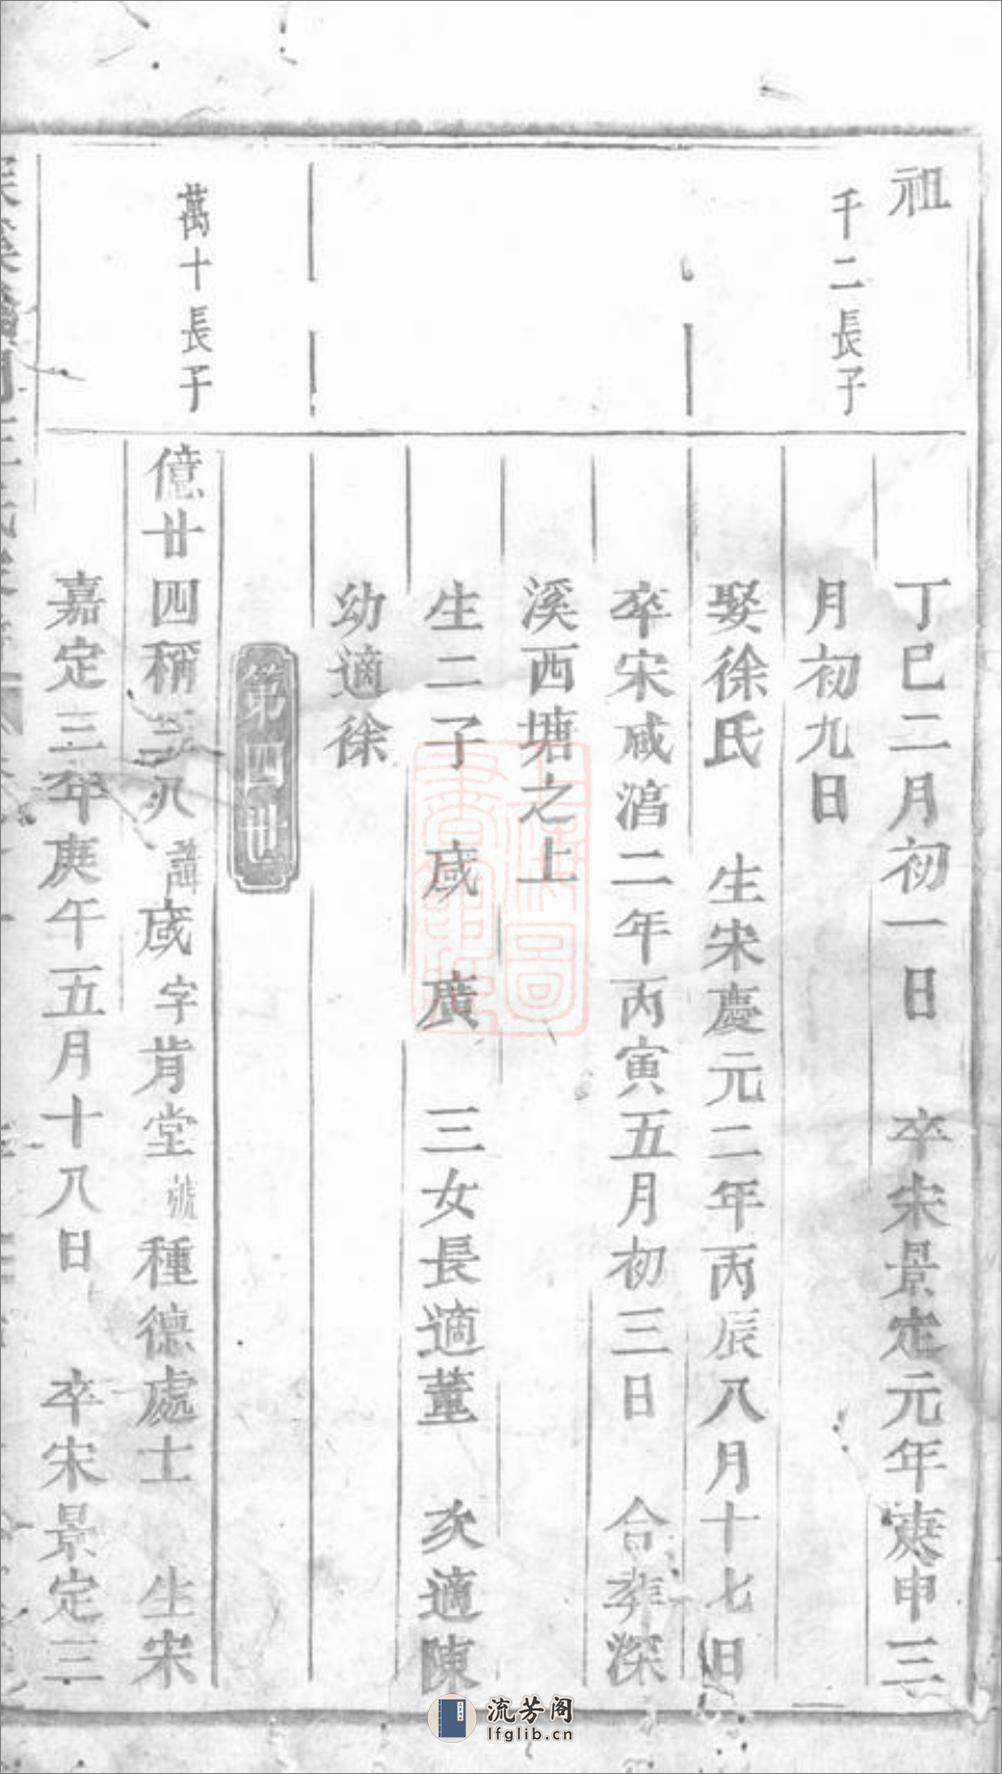 祖
千二長子
丁巳二月初一日　卒宋景定元年庚申三
月初九日
娶徐氏　生宋慶元二年丙辰八月十七日
卒宋咸淳二年丙寅五月初三日　合葬深
溪西塘之上
生二子　宬　廣　三女長適董　次適陳
幼適徐
第四世
萬十長子
億廿四稱三八諱宬字肯堂號種德處士　生宋
嘉定三年庚午五月十八日　卒宋景定三
流芳阁
lfglib.cn